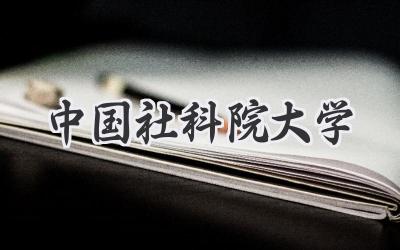 中国社科院大学